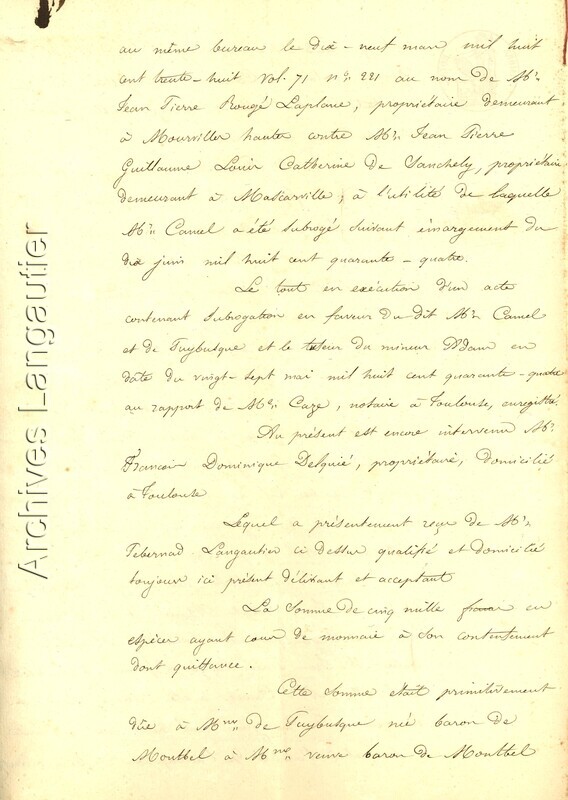 au même bureau le dix-neuf mars mil huit
cent trente-huit vol. 71 n° 221 au nom de Mr.
Jean Pierre Rougé Laplane, propriétaire demeurant
à Mourvilles hautes contre Mr. Jean Pierre
Guillaume Louis Catherine De Sanchely, propriétaire
demeurant à Mascarville, à l'utilité de laquelle
Mr. Camel a été subrogé suivant émargement du
dix juin mil huit cent quarante-quatre.
Le tout en exécution d'un acte
contenant subrogation en faveur du dit Mr. Camel
et de Puybusque et le tuteur du mineur Adam en
date du vingt-sept mai mil huit cent quarante-quatre
au rapport de Me. Caze, notaire à Toulouse, enregistré.
Au présent est encore intervenu Mr.
François Dominique Delquié, propriétaire, domicilié
à Toulouse
Lequel a présentement reçu de Mr.
Tebernad Langautier ci dessus qualifié et domicilié
toujours ici présent délivrant et acceptant
La somme de cinq mille francs en
espèces ayant cours de monnaie à son contentement
dont quittance.
Cette somme était primitivement
dûe à Mme de Puybusque née baron de
Montbel à Mme veuve baron de Montbel
Archives Langautier